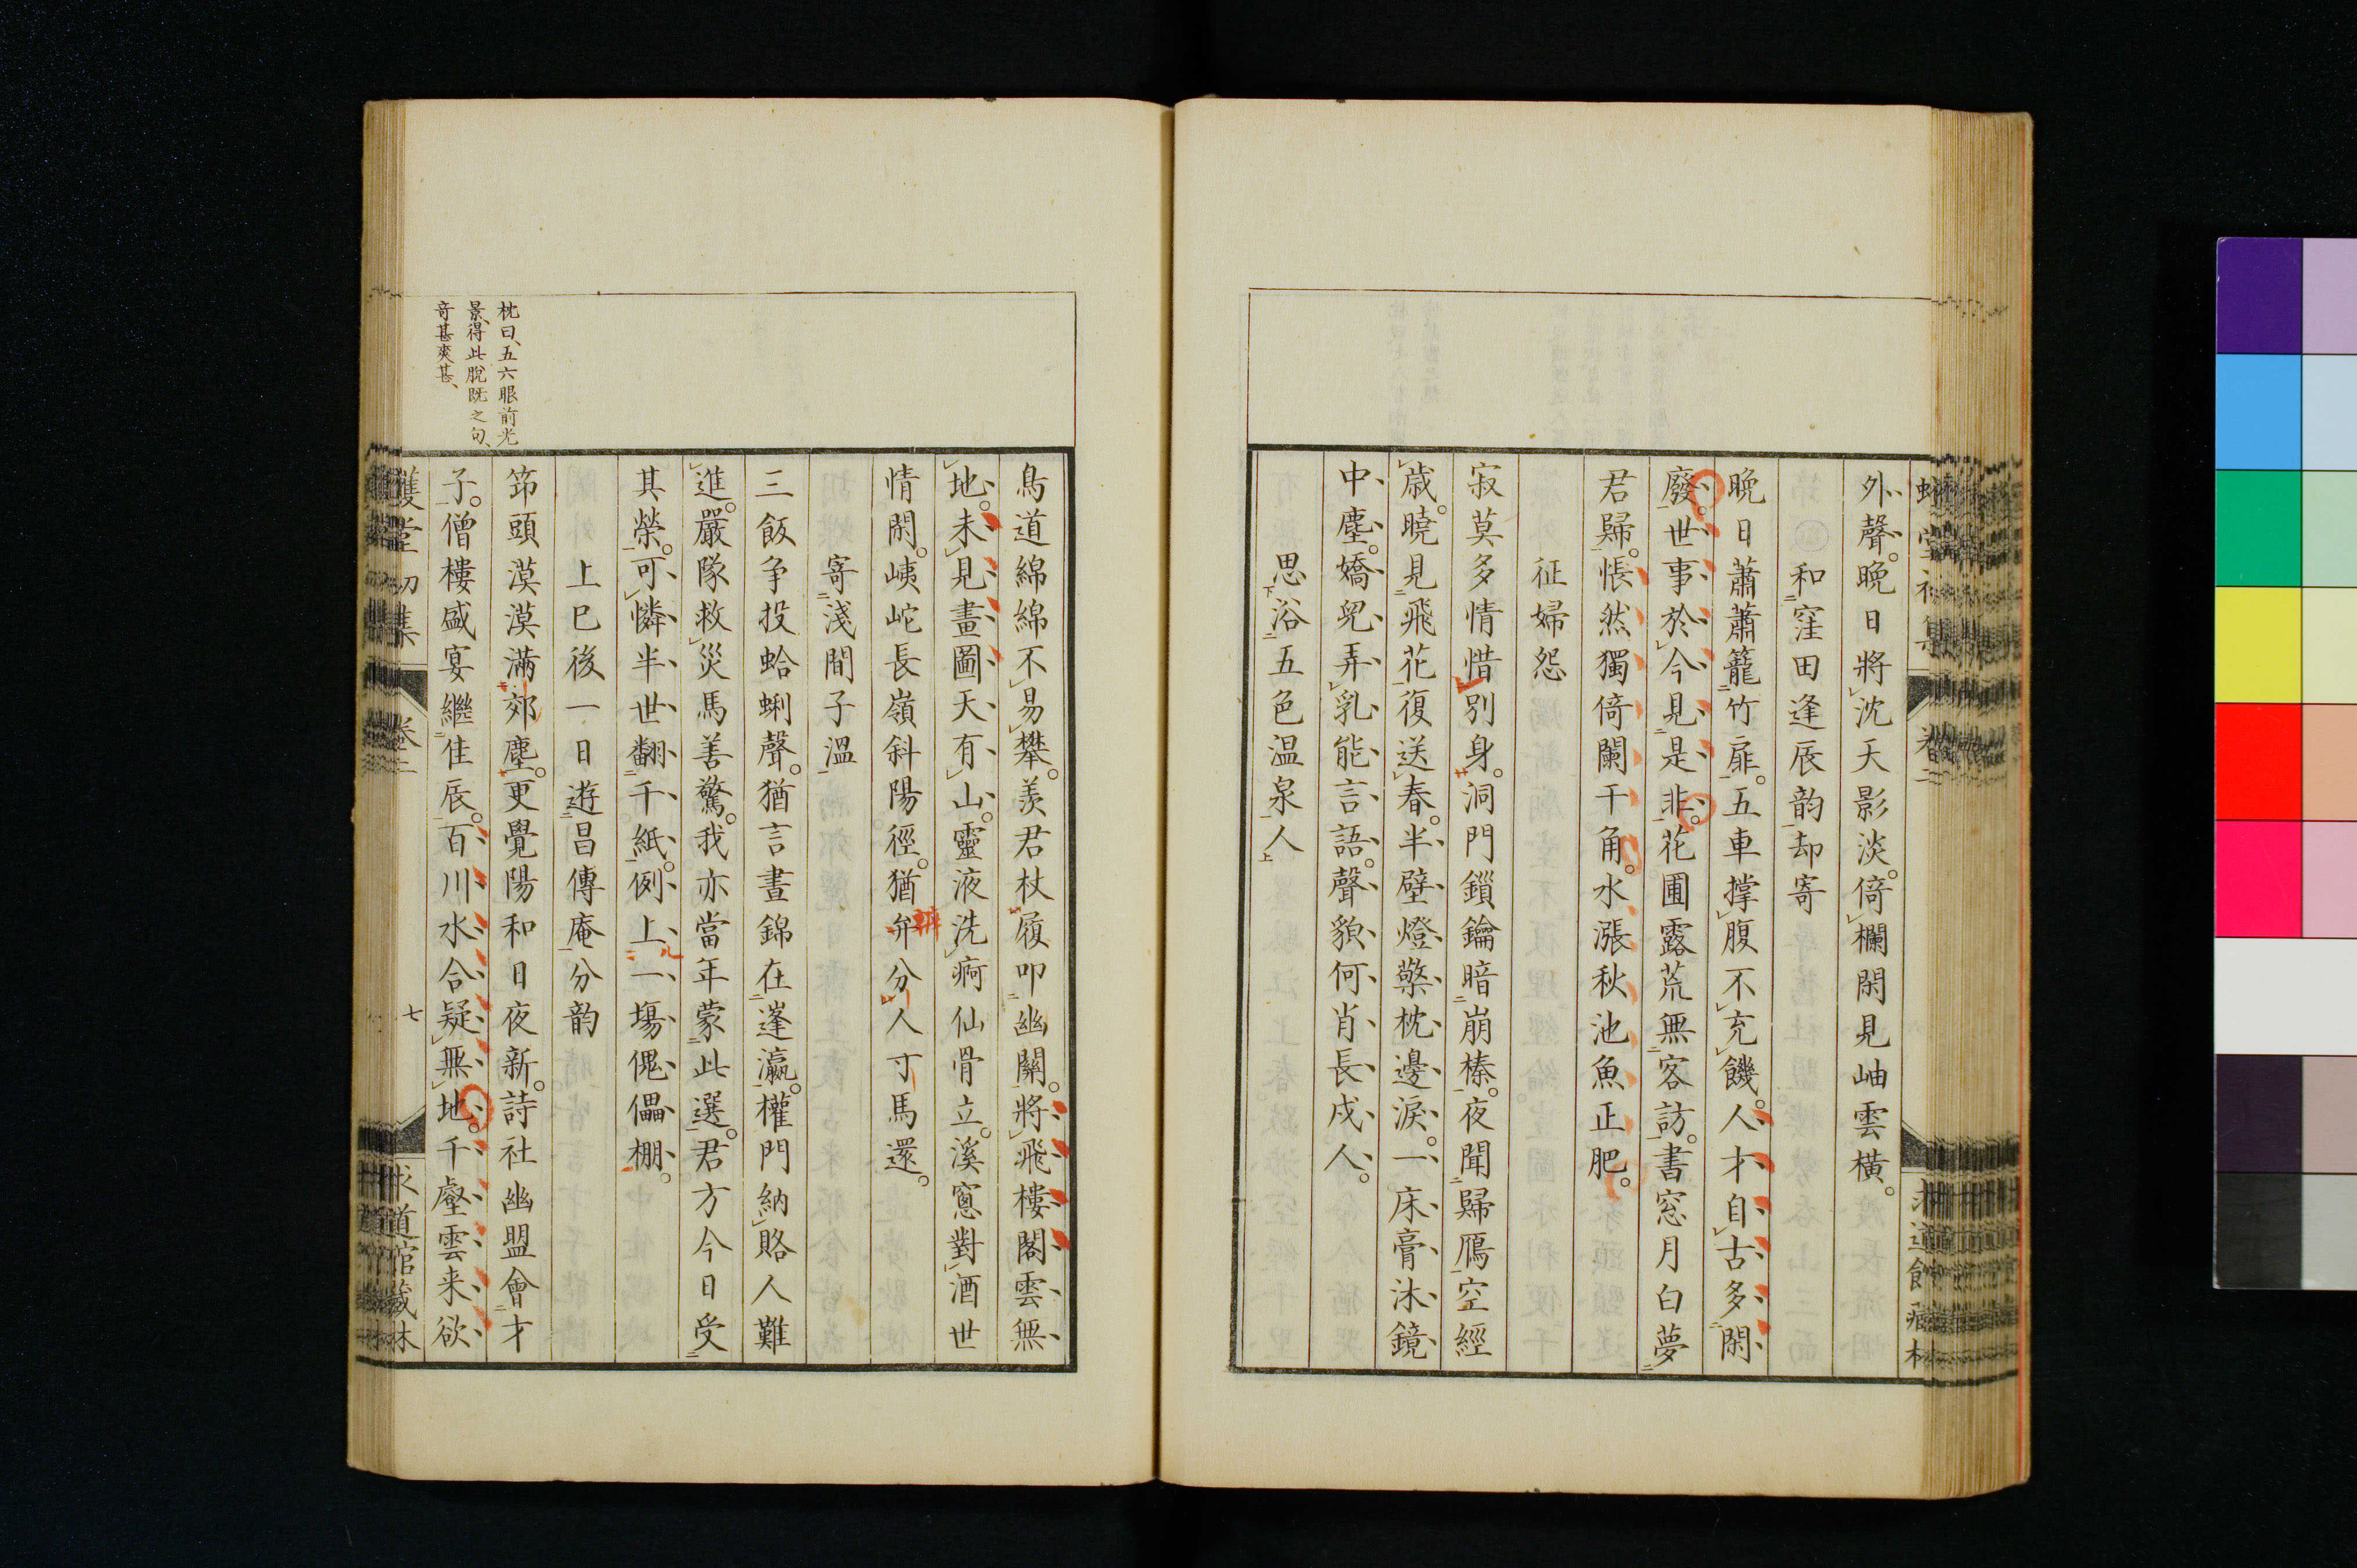 外聲。晩日將沈天影淡。倚欄閑見岫雲橫。
和窪田逢辰韵却寄
晩日蕭蕭籠竹扉。五車撑腹不充饑。人才自古多閑
廢。世事於今見是非。花圃露荒無客訪。書窓月白夢
君歸。悵然獨倚闌干角。水漲秋池魚正肥。
征婦怨
寂莫多情惜別身。洞門鎖鑰暗崩榛。夜聞歸鴈空經
歳。曉見飛花復送春。半壁燈檠枕邊淚。一床膏沐鏡
中塵。嬌兒弄乳能言語。聲貌何肖長戍人。
思浴五色温泉人
鳥道綿綿不易攀。羨君杖履叩幽關。將飛樓閣雲無
地。未見畫圖天有山。靈液洗痾仙骨立。溪窻對酒世
情閑。峓岮長嶺斜陽徑。猶弁分人寸馬還。
寄淺間子溫
三飯争投蛤蜊聲。猶言晝錦在蓬瀛。權門納賂人難
進。嚴隊救災馬善驚。我亦當年蒙此選。君方今日受
其榮。可憐半世翻千紙。例上一塲傀儡棚。
上巳後一日遊昌傳庵分韵
笻頭漠漠滿郊塵。更覺陽和日夜新。詩社幽盟會才
子。僧樓盛宴繼佳辰。百川水合疑無地。千壑雲来欲
枕曰、五六眼前光
景、得此脫既之句、
奇甚爽甚、
卷二
七
求道館藏